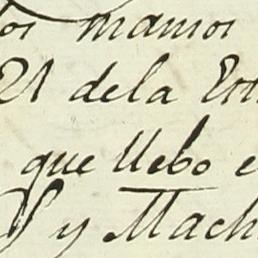 os manos
21 dela Est
que llebo e
y Mach